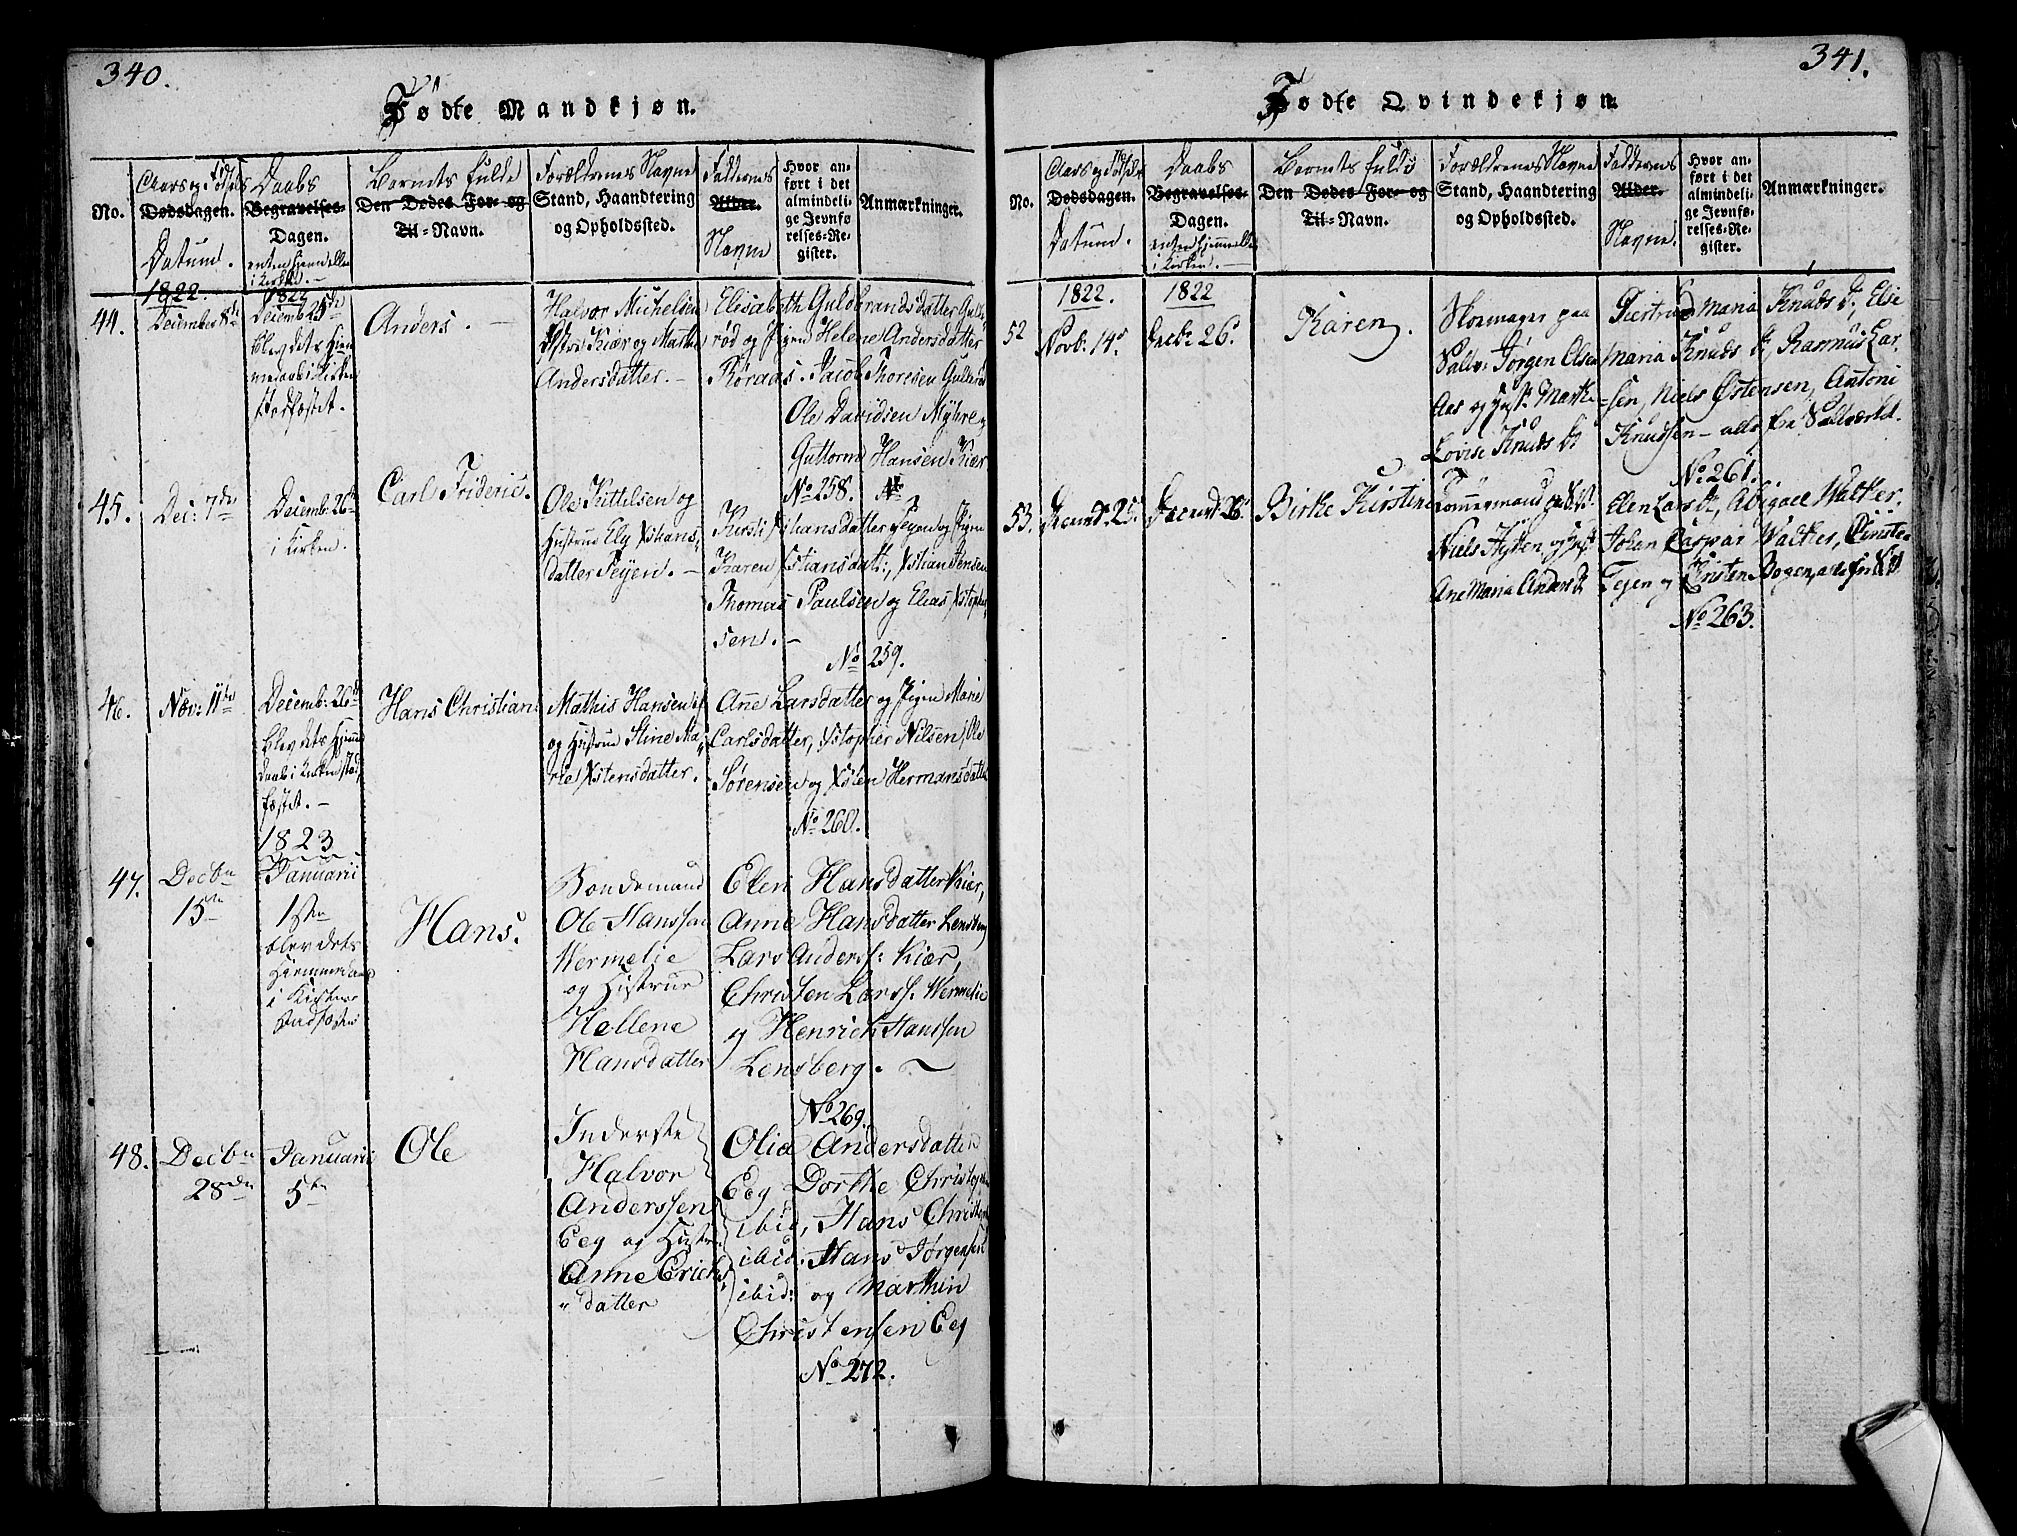 340.
Fødte Mandkjøn.
No.
Aars og Fødsels
Dødsdagen.
Datum.
Daabs
Begravelses-
Dagen.
enten hjemme eller
i Kirken.
Barnets fulde
Den Dødes For- og
Til-Navn.
Forældrenes Navne
Stand, Haandtering
og Opholdssted.
Faddernes
Alder.
Navne
Hvor an-
ført i det
almindeli-
ge Jevnfø-
relses-Re-
gister.
Anmærkninger.
1822.
1822
44.
December 8de
Decemb 25de
blev dets Hjem-
medaab i Kirken
stadfæstet.
Anders.
Halvor Michelsen
Kiær og Marthe
Andersdatter.
Elisabeth Guldbrandsdatter Guld-
rød og Pigen Helene Andersdatter
Røraas. Jacob Thoresen Gulderød
Ole Davidsen Myhre og
Guttorm Hansen Kiær
No 258.
45.
Dec: 7de
Decemb: 26de
i Kirken.
Carl Frideric.
Ole Kittelsen og
Hustrue Ely Xstians-
datter Teyen.
Kirsti Hansdatter Teyen og Pigen
Karen Xstiansdatt:, Xstian Jensen
Thomas Paulsen og Elias Xstopher-
sen.
No 259.
46.
Nov: 11te
Decemb: 26de
blev dets Hjemme
Daab i Kirken stad-
fæstet.
Hans Christian
Mathis Hansen
og Hustrue Stine Ma-
rie Xstensdatter.
Anne Larsdatter og Pigen Marie
Carlsdatter, Xstopher Nilsen, Ole
Sørensen og Xsten Hermansdatter
No 260.
1823
47.
Decbr
15de
Januarii
1ste
blev dets
Hiemmedaab
i Kirken
stadfæstet
Hans.
Bondemand
Ole Hanssen
Wermelie
og Hustrue
Hellene
Hansdatter
Elen Hansdatter Kiær,
Anne Hansdatter Lensberg
Lars Anderss: Kiær,
Christen Larss: Wermelie
og Henrich Hanssen
Lensberg.
No 269.
48.
Decbr
28de
Januarii
5te
Ole
Inderste
Halvor
Anderssen
Eeg og Hustru
Anne Erichs
datter
Olia Andersdatter
Eeg Dorthe Christophers
ibid, Hans Christens
ibid: Hans Jørgensen
ibid: og Marthin
Christensen Eeg
No 272.
341.
Fødte Qvindekjøn.
No.
Aars og Fødsels
Dødsdagen.
Datum.
Daabs
Begravelses-
Dagen.
enten hjemme eller
i Kirken.
Barnets fulde
Den Dødes For- og
Til-Navn.
Forældrenes Navne
Stand, Haandtering
og Opholdssted.
Faddernes
Alder.
Navne.
Hvor an-
ført i det
almindeli-
ge Jevnfø-
relses-Re-
gister.
Anmærkninger.
1822.
1822
52
Novb: 14de
Decb: 26.
Karen.
paa
Saltv: Jørgen Olsen
Aas og Marthe
Lovise Knuds Dt
Giertrud Maria Knuds D, Else
Maria Knuds D, Rasmus Lar-
sen, Niels Østensen, Antoni
Knudsen - alle fra Saltværket.
No 261.
53.
Decemb: 25.
Decemb: 26.
Birthe Kirstine
Tømmermand
Niels
Ane Maria Anders Dt
Elen Lars Dt, Abigael Walker,
Johan Caspar Walker, Christen
Tejen og Kirsten Bogen, alle
No 263.